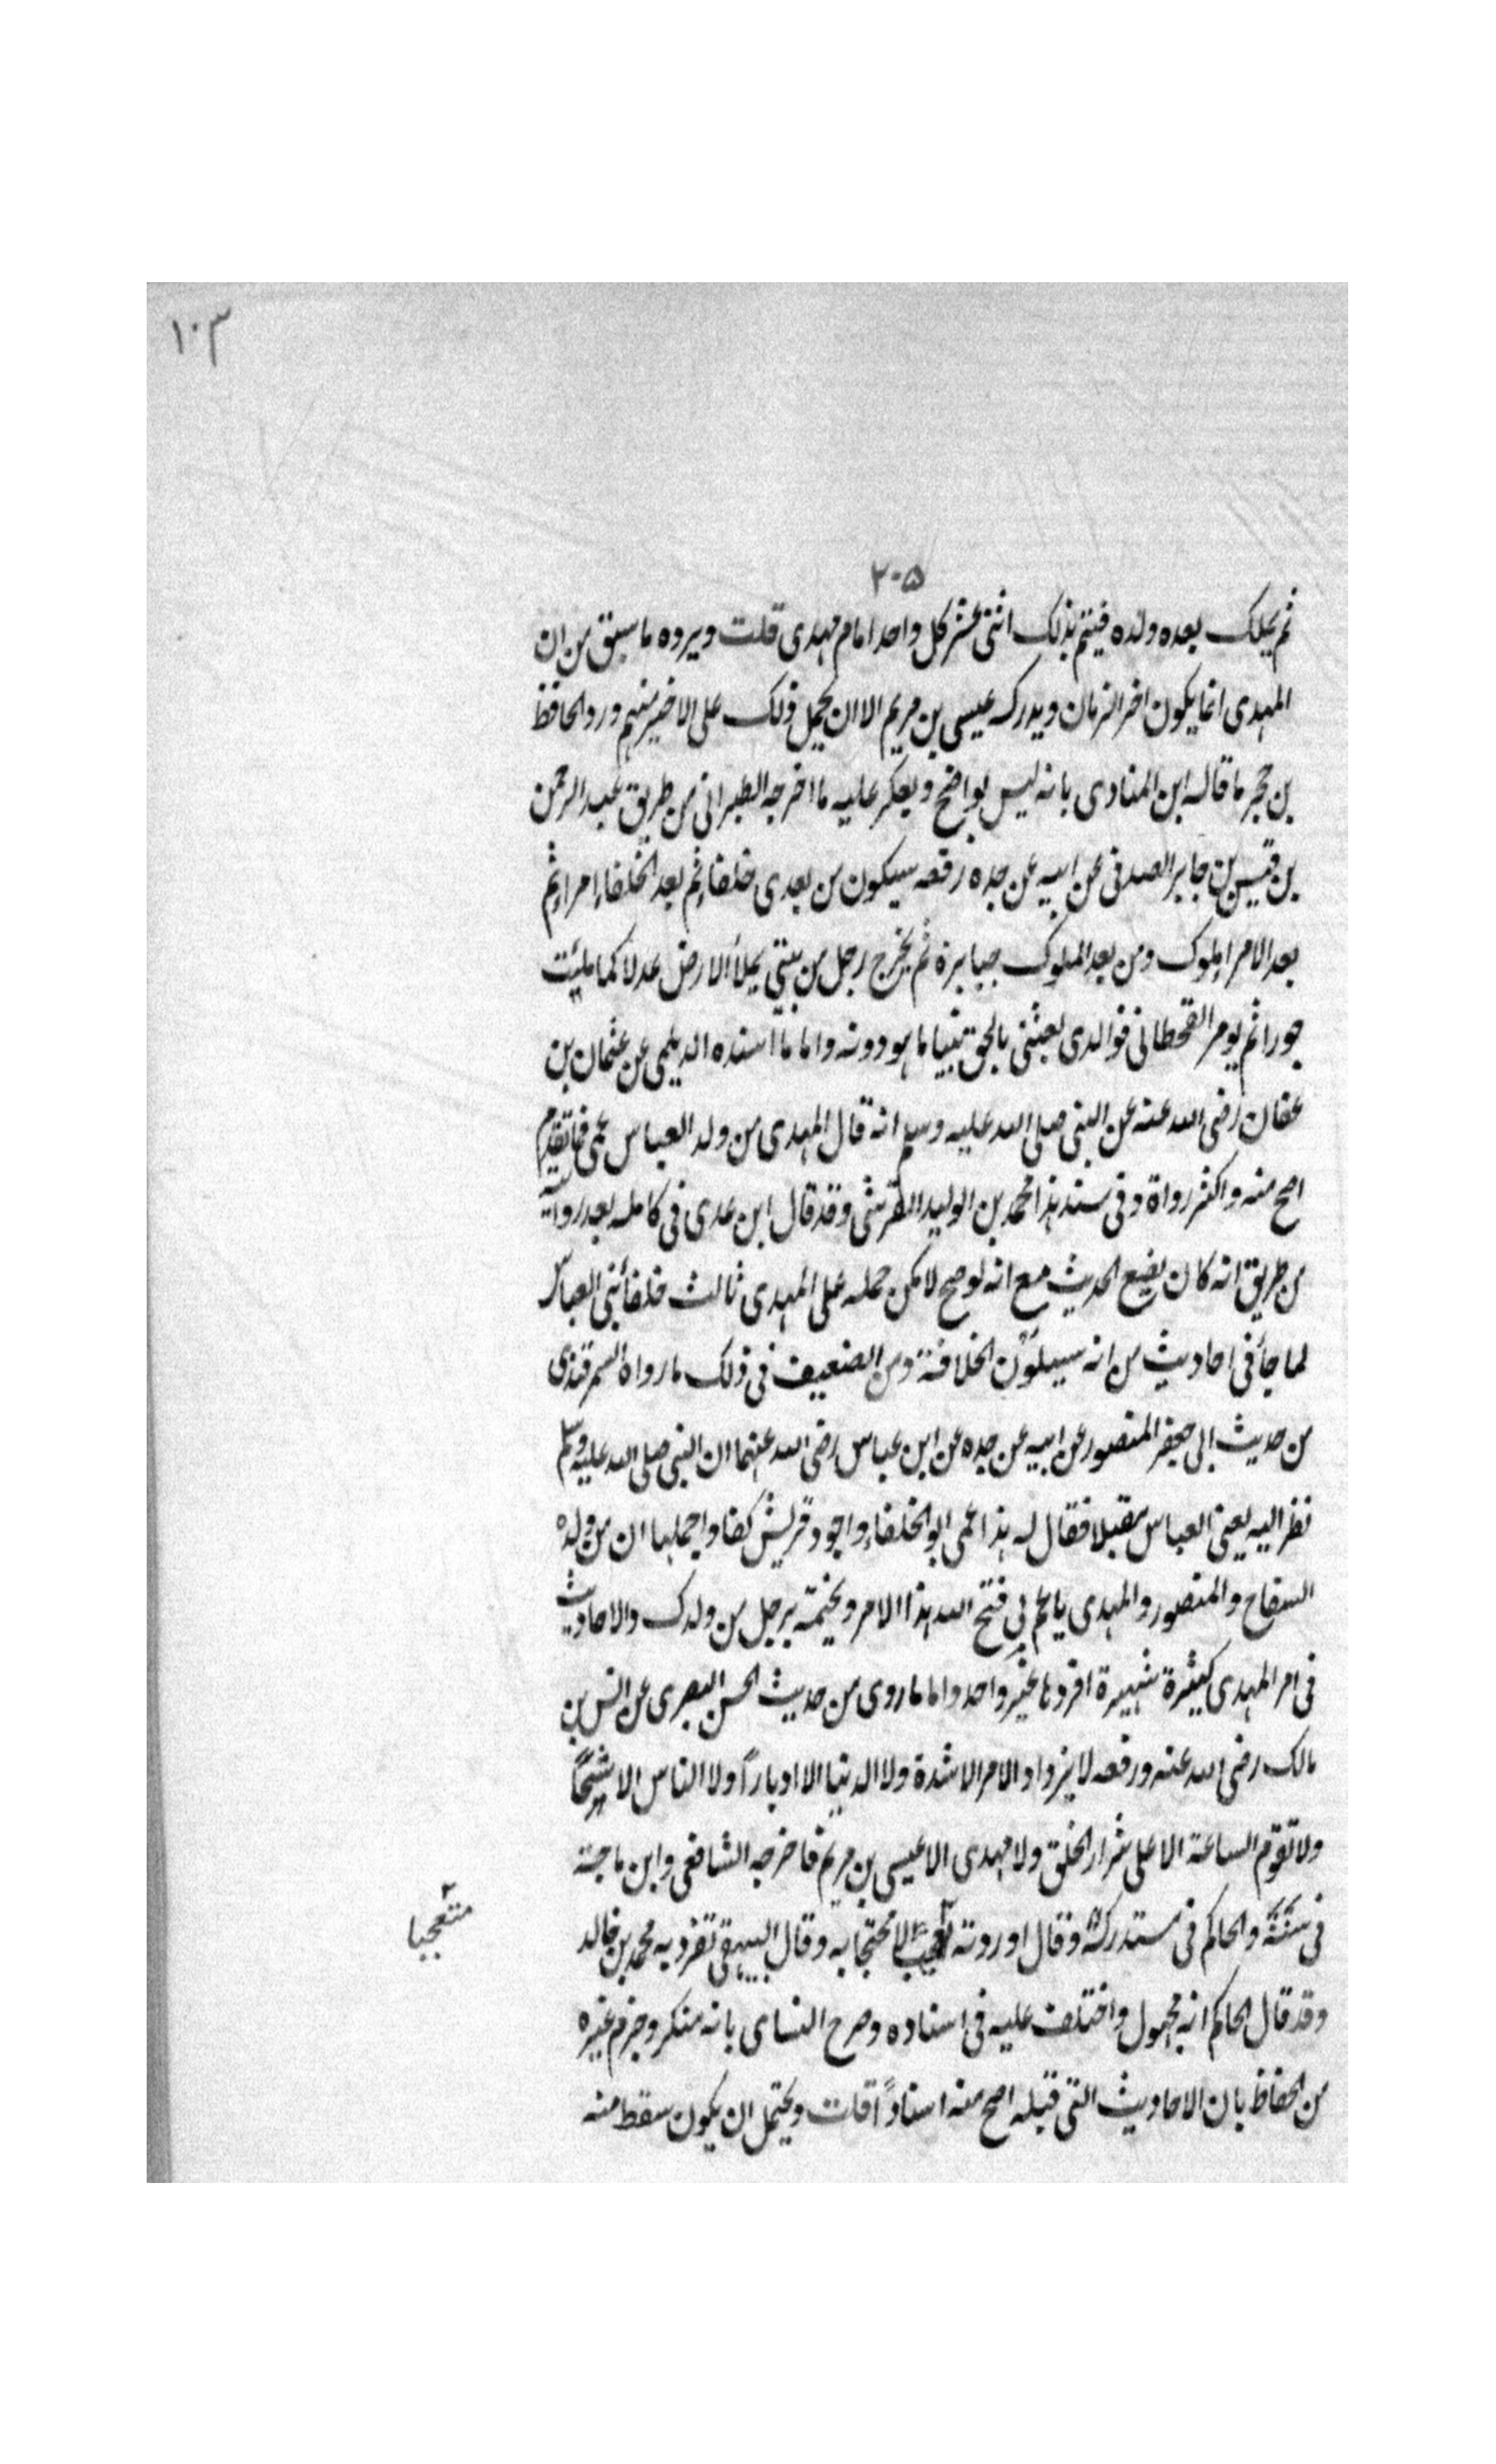 ١٠٣
٢٠٥
ثم يملك بعده ولده فيتم بذلك اثنى عشر كل واحد امام مهدى قلت ويرده ما سبق من ان
المهدى انما يكون اخر الزمان ويدركه عيسى بن مريم الا ان يحمل ذلك على الاخير منهم ورد الحافظ
بن حجر ما قاله ابن المنادى بانه ليس بواضح ويعكر عليه ما اخرجه الطبرانى من طريق عبد الرحمن
بن قيس بن جابر الصدفى عن ابيه عن جده رفعه سيكون من بعدى خلفاء ثم بعد الخلفاء امراء ثم
بعد الامراء ملوك ومن بعد الملوك جبابرة ثم يخرج رجل من بيتى يملأ الارض عدلا كما ملئت
جورا ثم يومر القحطانى فوالدى بعثنى بالحق نبيا ما هو دونه واما ما اسنده الديلمى عن عثمان بن
عفان رضى الله عنه عن النبى صلى الله عليه وسلم انه قال المهدى من ولد العباس عمى فما تقدم
اصح منه واكثر رواة وفى سند هذا محمد بن الوليد القرشى وقد قال ابن عدى فى كامله بعد روايته
من طريق انه كان يضع الحديث مع انه لو صح لامكن حمله على المهدى ثالث خلفأ بنى العباس
لما جأ فى احاديث من انه سيلون الخلافة ومن الضعيف فى ذلك ما رواه السمرقندى
من حديث ابى جعفر المنصور عن ابيه عن جده عن ابن عباس رضى الله عنهما ان النبى صلى الله عليه وسلم
نظر اليه يعنى العباس مقبلا فقال له هذا عمى ابو الخلفاء واجود قريش كفا واجملها ان من ولده
السفاح والمنصور والمهدى يا عم بى فتح الله هذا الامر ويختمه برجل من ولدك والاحاديث
فى امر المهدى كثيرة شهيرة افردها غير واحد واما ما روى من حديث الحسن البصرى عن انس بن
مالك رضى الله عنه ورفعه لا يزداد الامر الا شدة ولا الدنيا الا ادبارًا ولا الناس الا شحًا
ولا تقوم الساعة الا على شرار الخلق ولا مهدى الا عيسى بن مريم فاخرجه الشافعى وابن ماجة
فى سننه والحاكم فى مستدركه وقال اوردته لا محتجا به وقال البيهقى تفرد به محمد بن خالد
متعجبا
وقد قال الحاكم انه مجهول واختلف عليه فى اسناده وصرح النساى بانه منكر وجزم غيره
من الحفاظ بان الاحاديث التى قبله اصح منه اسنادًا قلت ويحتمل ان يكون سقط منه